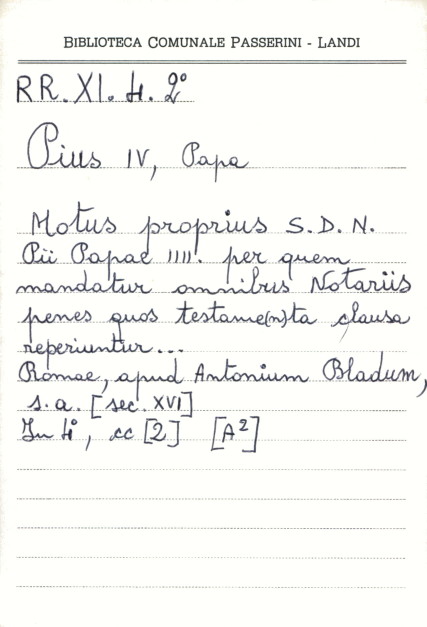 BIBLIOTECA COMUNALE PASSERINI - LANDI
RR. XI. 4. 2°
Pius IV, Papa
Motus proprius S. D. N.
Pii Papae IIII. per quem
mandatur omnibus Notariis
penes quos testame(n)ta clausa
reperiuntur...
Romae, apud Antonium Bladum,
s. a. [sec. XVI]
In 4°, cc [2] [A²]